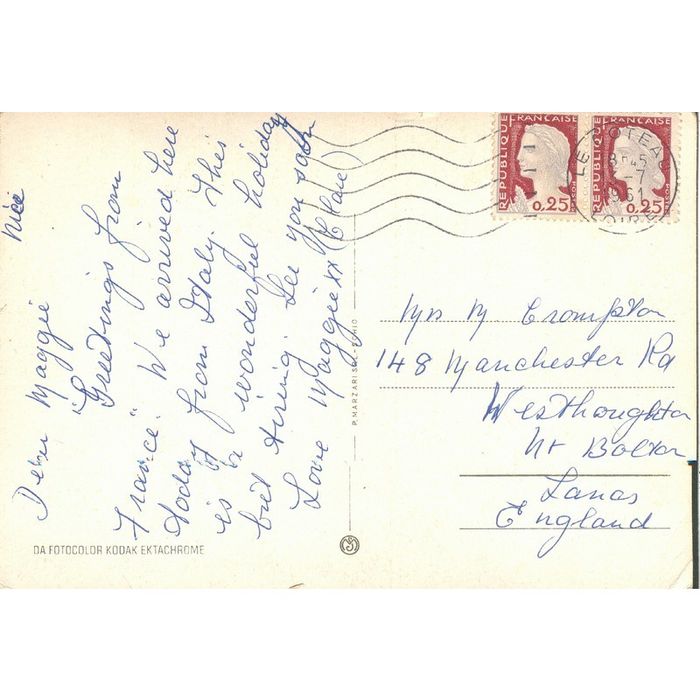 Nice
Dear Maggie
"Greetings from
France". We arrived here
today from Italy. This
is a wonderful holiday
but tiring. See you soon
Love Maggie xx (Clare)
DA FOTOCOLOR KODAK EKTACHROME
P. MARZARI S.R.L. - SCHIO
REPUBLIQUE FRANCAISE
0,25
REPUBLIQUE FRANCAISE
0,25
POSTES
LE POTEAU
1961
Mrs M Crompton
148 Manchester Rd
Westhoughton
Nr Bolton
Lancs
England